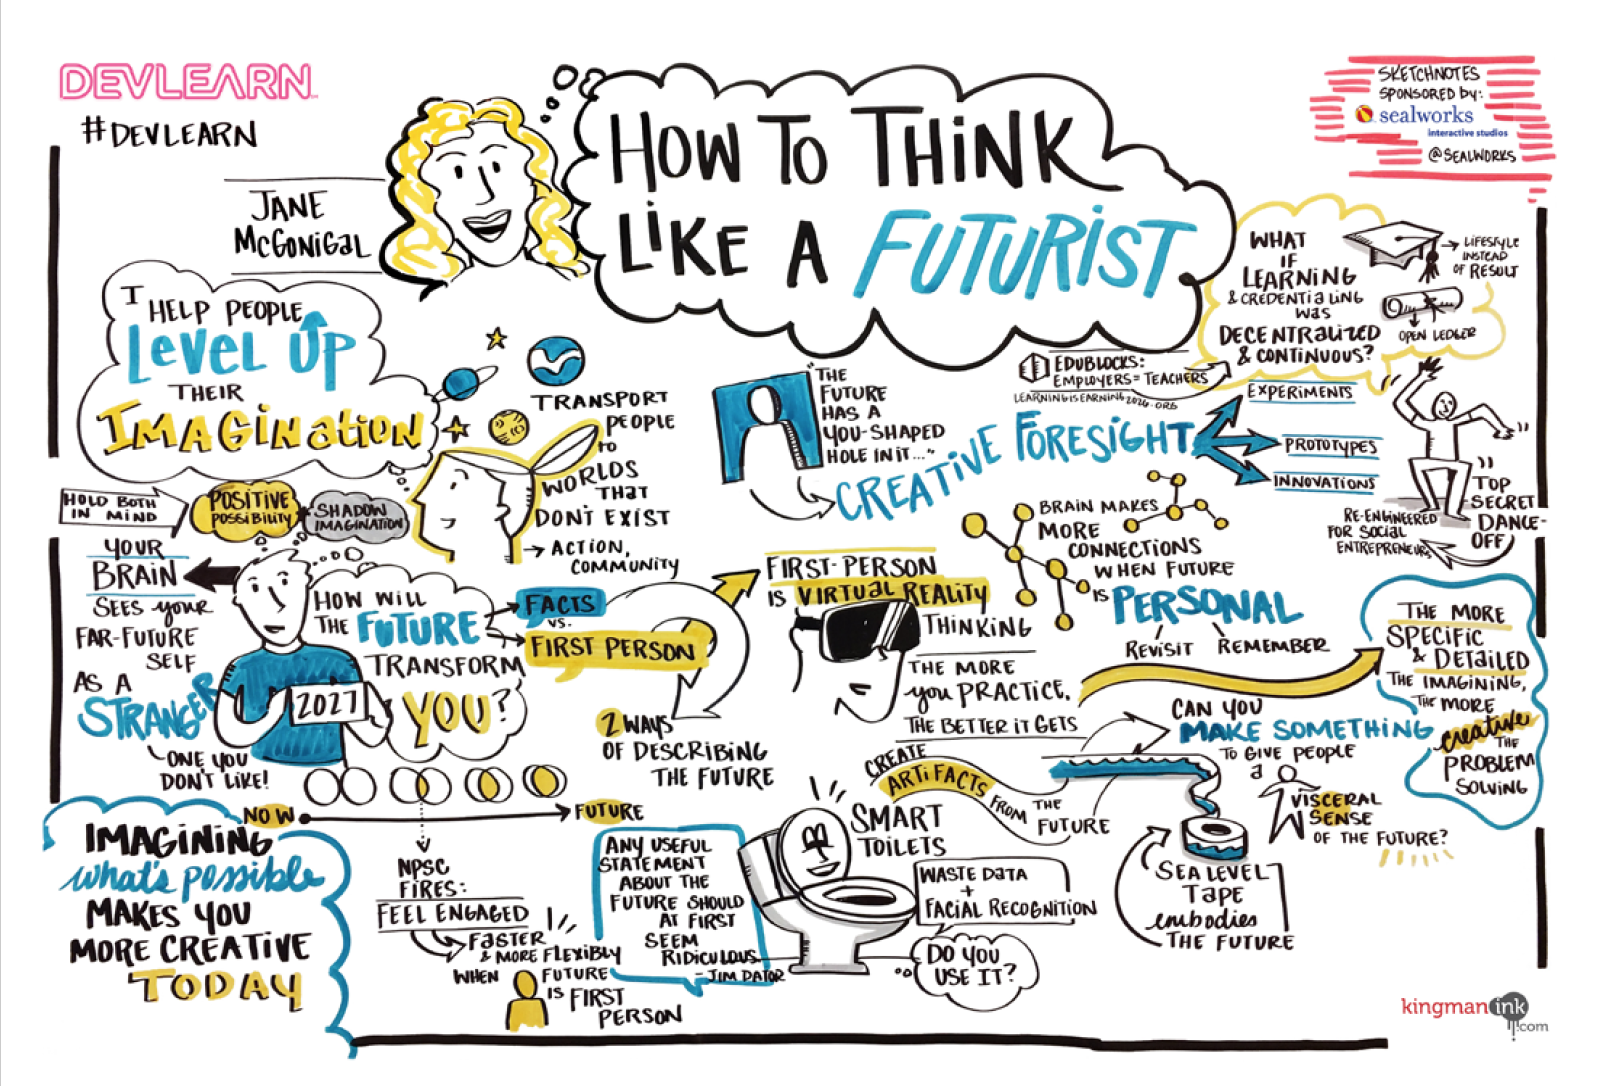 DEVLEARN
#DEVLEARN
JANE
McGONIGAL
HOW TO THINK
LIKE A FUTURIST
SKETCHNOTES
SPONSORED by:
sealworks
interactive studios
@SEALWORKS
I
HELP PEOPLE
LEVEL UP
THEIR
IMAGINATION
TRANSPORT
PEOPLE
to
WORLDS
THAT
DON'T EXIST
→ ACTION,
COMMUNITY
HOLD BOTH
IN MIND
POSITIVE
POSSIBILITY
SHADOW
IMAGINATION
YOUR
BRAIN
SEES your
FAR-FUTURE
SELF
AS A
STRANGER
ONE YOU
DON'T LIKE!
2027
HOW WILL
THE FUTURE
TRANSFORM
YOU?
FACTS
VS.
FIRST PERSON
2 WAYS
OF DESCRIBING
THE FUTURE
"THE
FUTURE
HAS A
YOU-SHAPED
HOLE IN IT..."
CREATIVE FORESIGHT
EXPERIMENTS
PROTOTYPES
INNOVATIONS
EDUBLOCKS:
EMPLOYERS = TEACHERS
LEARNINGISEARNING2026.ORG
WHAT
IF
LEARNING
& CREDENTIALING
WAS
DECENTRALIZED
& CONTINUOUS?
→ LIFESTYLE
INSTEAD
OF RESULT
OPEN LEDGER
TOP
SECRET
DANCE-
OFF
RE-ENGINEERED
FOR SOCIAL
ENTREPRENEURS
BRAIN MAKES
MORE
CONNECTIONS
WHEN FUTURE
IS PERSONAL
REVISIT REMEMBER
FIRST-PERSON
IS VIRTUAL REALITY
THINKING
THE MORE
you PRACTICE,
THE BETTER IT GETS
THE MORE
SPECIFIC
& DETAILED
THE IMAGINING,
THE MORE
creative
THE
PROBLEM
SOLVING
CAN YOU
MAKE SOMETHING
TO GIVE PEOPLE
a
VISCERAL
SENSE
OF THE FUTURE?
CREATE
ARTIFACTS
FROM THE
FUTURE
SEA LEVEL
TAPE
embodies
THE FUTURE
SMART
TOILETS
WASTE DATA
+
FACIAL RECOGNITION
DO YOU
USE IT?
ANY USEFUL
STATEMENT
ABOUT THE
FUTURE SHOULD
AT FIRST
SEEM
RIDICULOUS
- JIM DATOR
NOW
FUTURE
NPSC
FIRES:
FEEL ENGAGED
FASTER
& MORE FLEXIBLY
WHEN FUTURE
IS FIRST
PERSON
IMAGINING
what's possible
MAKES YOU
MORE CREATIVE
TODAY
kingmanink
.com